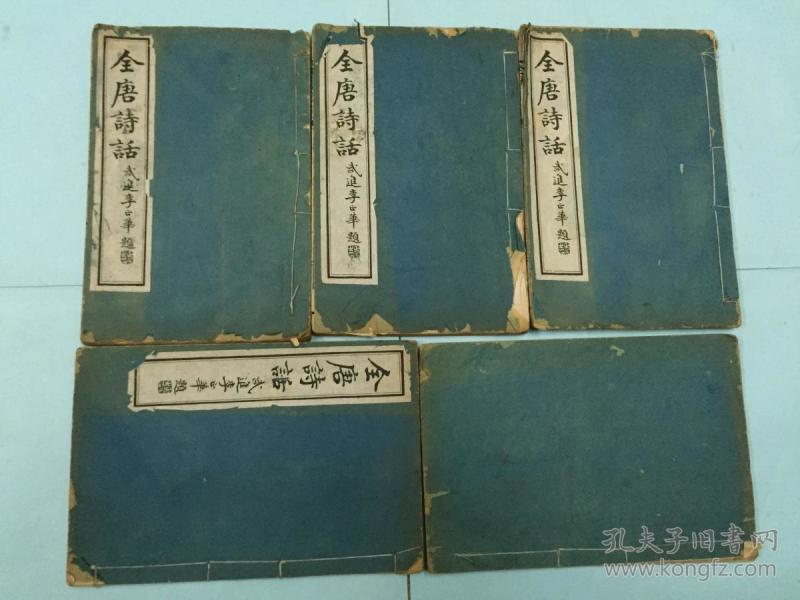 全唐詩話
武進李正華題
全唐詩話
武進李正華題
全唐詩話
武進李正華題
全唐詩話
武進李正華題
孔夫子旧书网
www.kongfz.com